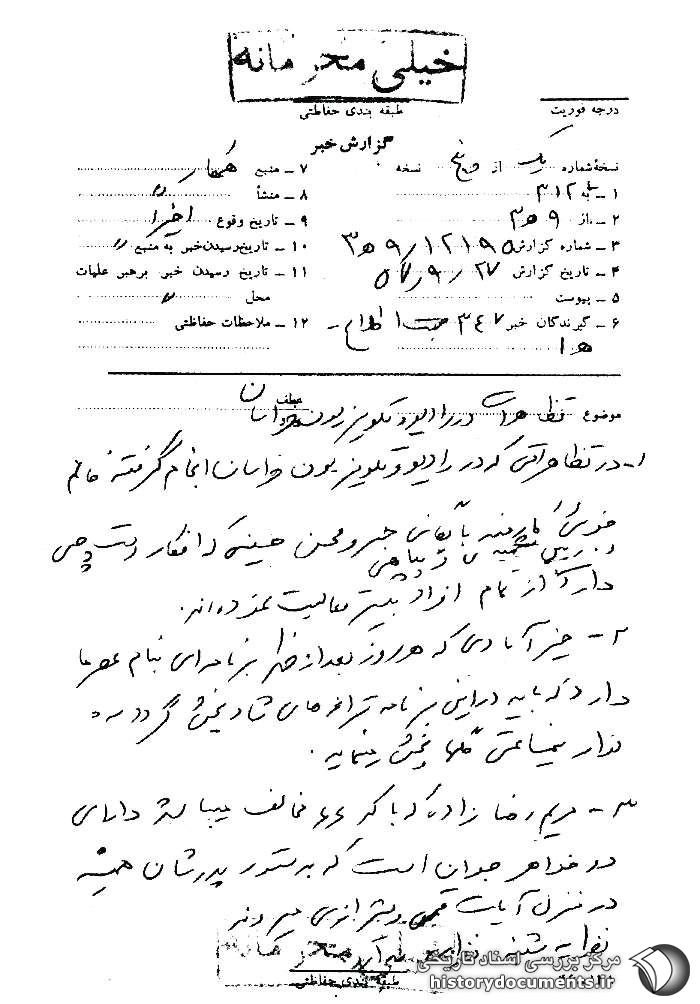 خیلی محرمانه
طبقه بندی حفاظتی
درجه فوریت
گزارش خبر
نسخهٔ شماره یک از پنج نسخه
۱ - به ۳۱۲
۲ - از ۹ ه ۳
۳ - شماره گزارش ۱۲۱۹۵ / ۹ ه ۳
۴ - تاریخ گزارش ۲۷ / ۹ /
۵ - پیوست
۶ - گیرندگان خبر ۳۴۷ جهت اطلاع -
ه ۱
۷ - منبع همکار
۸ - منشأ "
۹ - تاریخ وقوع اخیراً
۱۰ - تاریخ رسیدن خبر به منبع "
۱۱ - تاریخ رسیدن خبر برهبر عملیات
محل "
۱۲ - ملاحظات حفاظتی
عطف
موضوع تظاهرات در رادیو تلویزیون خراسان
۱- در تظاهراتی که در رادیو تلویزیون خراسان انجام گرفته خانم
کارمند بایگانی خبر و محسن حسینی که افکار دست چپی
دارد از تمام افراد بیشتر فعالیت نموده اند.
۲- خیرآبادی که هر روز بعد از ظهر برنامه ای بنام عصر ما
دارد که باید در این برنامه ترانه های شاد پخش گردد
پخش مینماید.
۳- مریم رضا زاده که با مخالف میباشد دارای
دو خواهر جوان است که بدستور پدرشان همیشه
در منزل آیات قمی و شیرازی میروند
خیلی محرمانه
طبقه بندی حفاظتی
مرکز بررسی اسناد تاریخی
historydocuments.ir